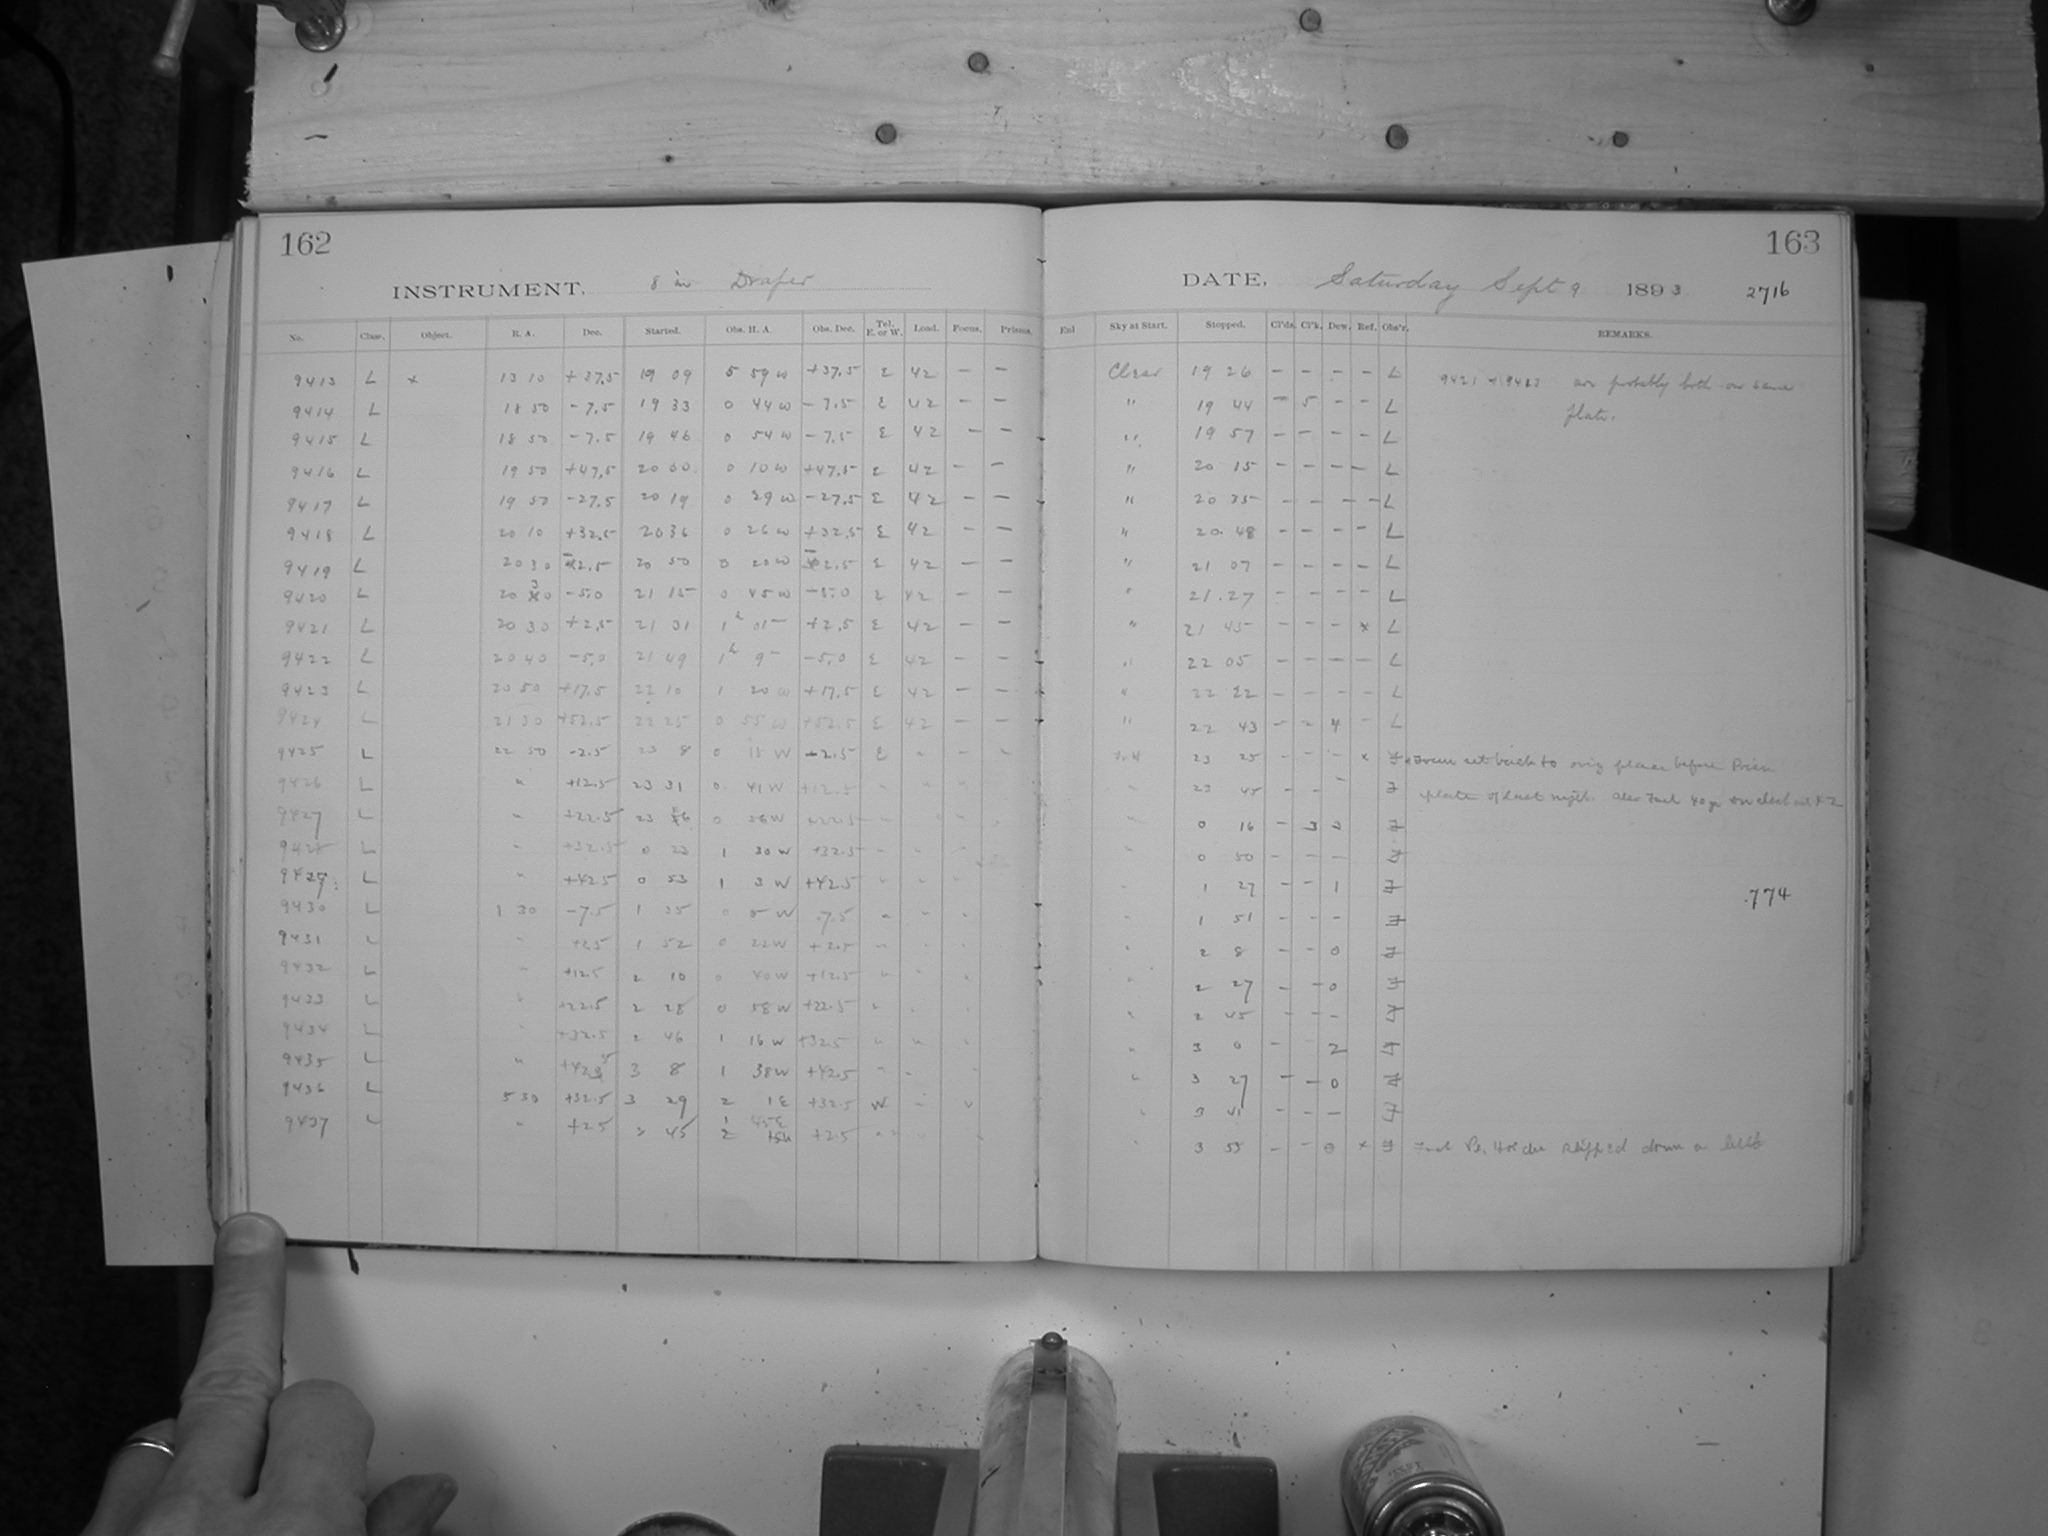 162
INSTRUMENT. 8 in Draper
No. Class. Object. R. A. Dec. Started. Obs. H. A. Obs. Dec. Tel. E. or W. Load. Focus. Prisms.
9413 L x 13 10 +37.5 19 09 5 59 W +37.5 E 42 — —
9414 L 18 50 -7.5 19 33 0 44 W -7.5 E 42 — —
9415 L 18 50 -7.5 19 46 0 54 W -7.5 E 42 — —
9416 L 19 50 +47.5 20 00 0 10 W +47.5 E 42 — —
9417 L 19 50 -27.5 20 19 0 29 W -27.5 E 42 — —
9418 L 20 10 +32.5 20 36 0 26 W +32.5 E 42 — —
9419 L 20 30 -2.5 20 50 0 20 W -2.5 E 42 — —
9420 L 20 30 -5.0 21 15 0 45 W -5.0 E 42 — —
9421 L 20 30 +2.5 21 31 1h 01- +2.5 E 42 — —
9422 L 20 40 -5.0 21 49 1h 9- -5.0 E 42 — —
9423 L 20 50 +17.5 22 10 1 20 W +17.5 E 42 — —
9424 L 21 30 +52.5 22 25 0 55 W +52.5 E 42 — —
9425 L 22 50 -2.5 23 8 0 18 W -2.5 E " - "
9426 L " +12.5 23 31 0 41 W +12.5 " " "
9427 L " +22.5 23 0 56 W +22.5 - " -
9428 L " +32.5 0 23 1 30 W +32.5 - - -
9429 L " +42.5 0 53 1 3 W +42.5 " " "
9430 L 1 30 -7.5 1 35 0 5 W -7.5 " " "
9431 L " +2.5 1 52 0 22 W +2.5 " " "
9432 L " +12.5 2 10 0 40 W +12.5 " " "
9433 L " +22.5 2 28 0 58 W +22.5 " " "
9434 L " +32.5 2 46 1 16 W +32.5 " " "
9435 L " +42.5 3 8 1 38 W +42.5 " " "
9436 L 5 30 +32.5 3 29 2 1 E +32.5 W " "
9437 L " +2.5 3 45 1 45 E +2.5 " "
163
DATE, Saturday Sept 9 1893 2716
Enl Sky at Start. Stopped. Cl'ds. Cl'k. Dew. Ref. Obs'r. REMARKS.
Clear 19 26 — — — — L 9421 + 9423 are probably both on same
" 19 44 — 5 — — L plate.
" 19 57 — — — — L
" 20 15 — — — — L
" 20 35 — — — — L
" 20 48 — — — — L
" 21 07 — — — — L
" 21 27 — — — — L
" 21 45 — — — x L
" 22 05 — — — — L
" 22 22 — — — — L
" 22 43 — 2 4 — L
23 25 — — — x F x Focus set back to orig place before Prism
" 23 45 — — — F plate of last night. Also on clock
" 0 16 — 3 F
" 0 50 — — — F
" 1 27 — — 1 F .774
" 1 51 — — — F
" 2 8 — — 0 F
" 2 27 — — 0 F
" 2 45 — — — F
" 3 0 — — 2 F
" 3 27 — — 0 F
" 3 41 — — — F
" 3 55 — — 0 x F Pl. Holder slipped down a little